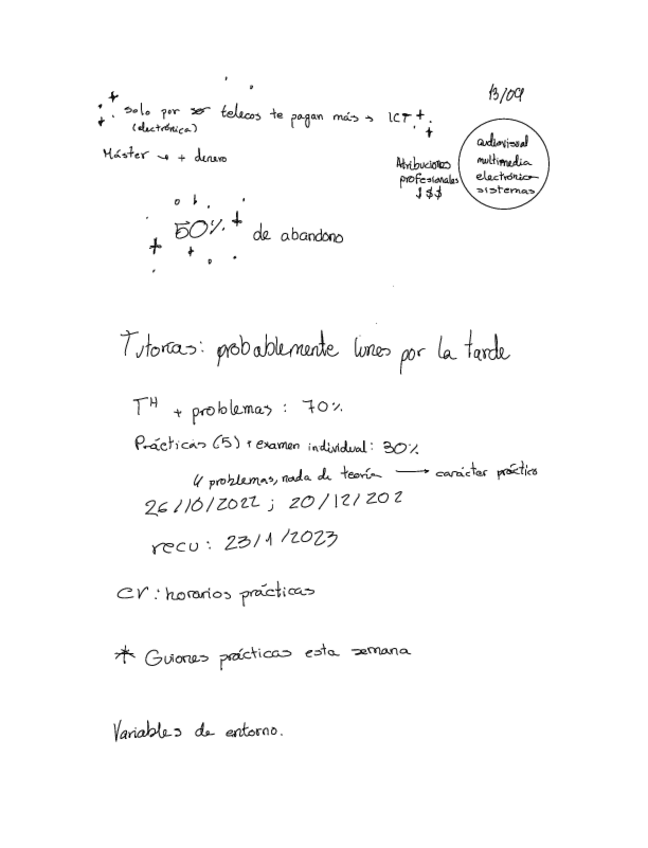 13/09
Solo por ser telecos te pagan más → ICT
(electrónica)
Máster → + dinero
Atribuciones
profesionales
$$$
audiovisual
multimedia
electrónica
sistemas
50% de abandono
Tutorías: probablemente lunes por la tarde
Tᴴ + problemas: 70%
Prácticas (5) + examen individual: 30%
4 problemas, nada de teoría → carácter práctico
26/10/2022 ; 20/12/202
recu: 23/1/2023
CV: horarios prácticas
* Guiones prácticas esta semana
Variables de entorno.